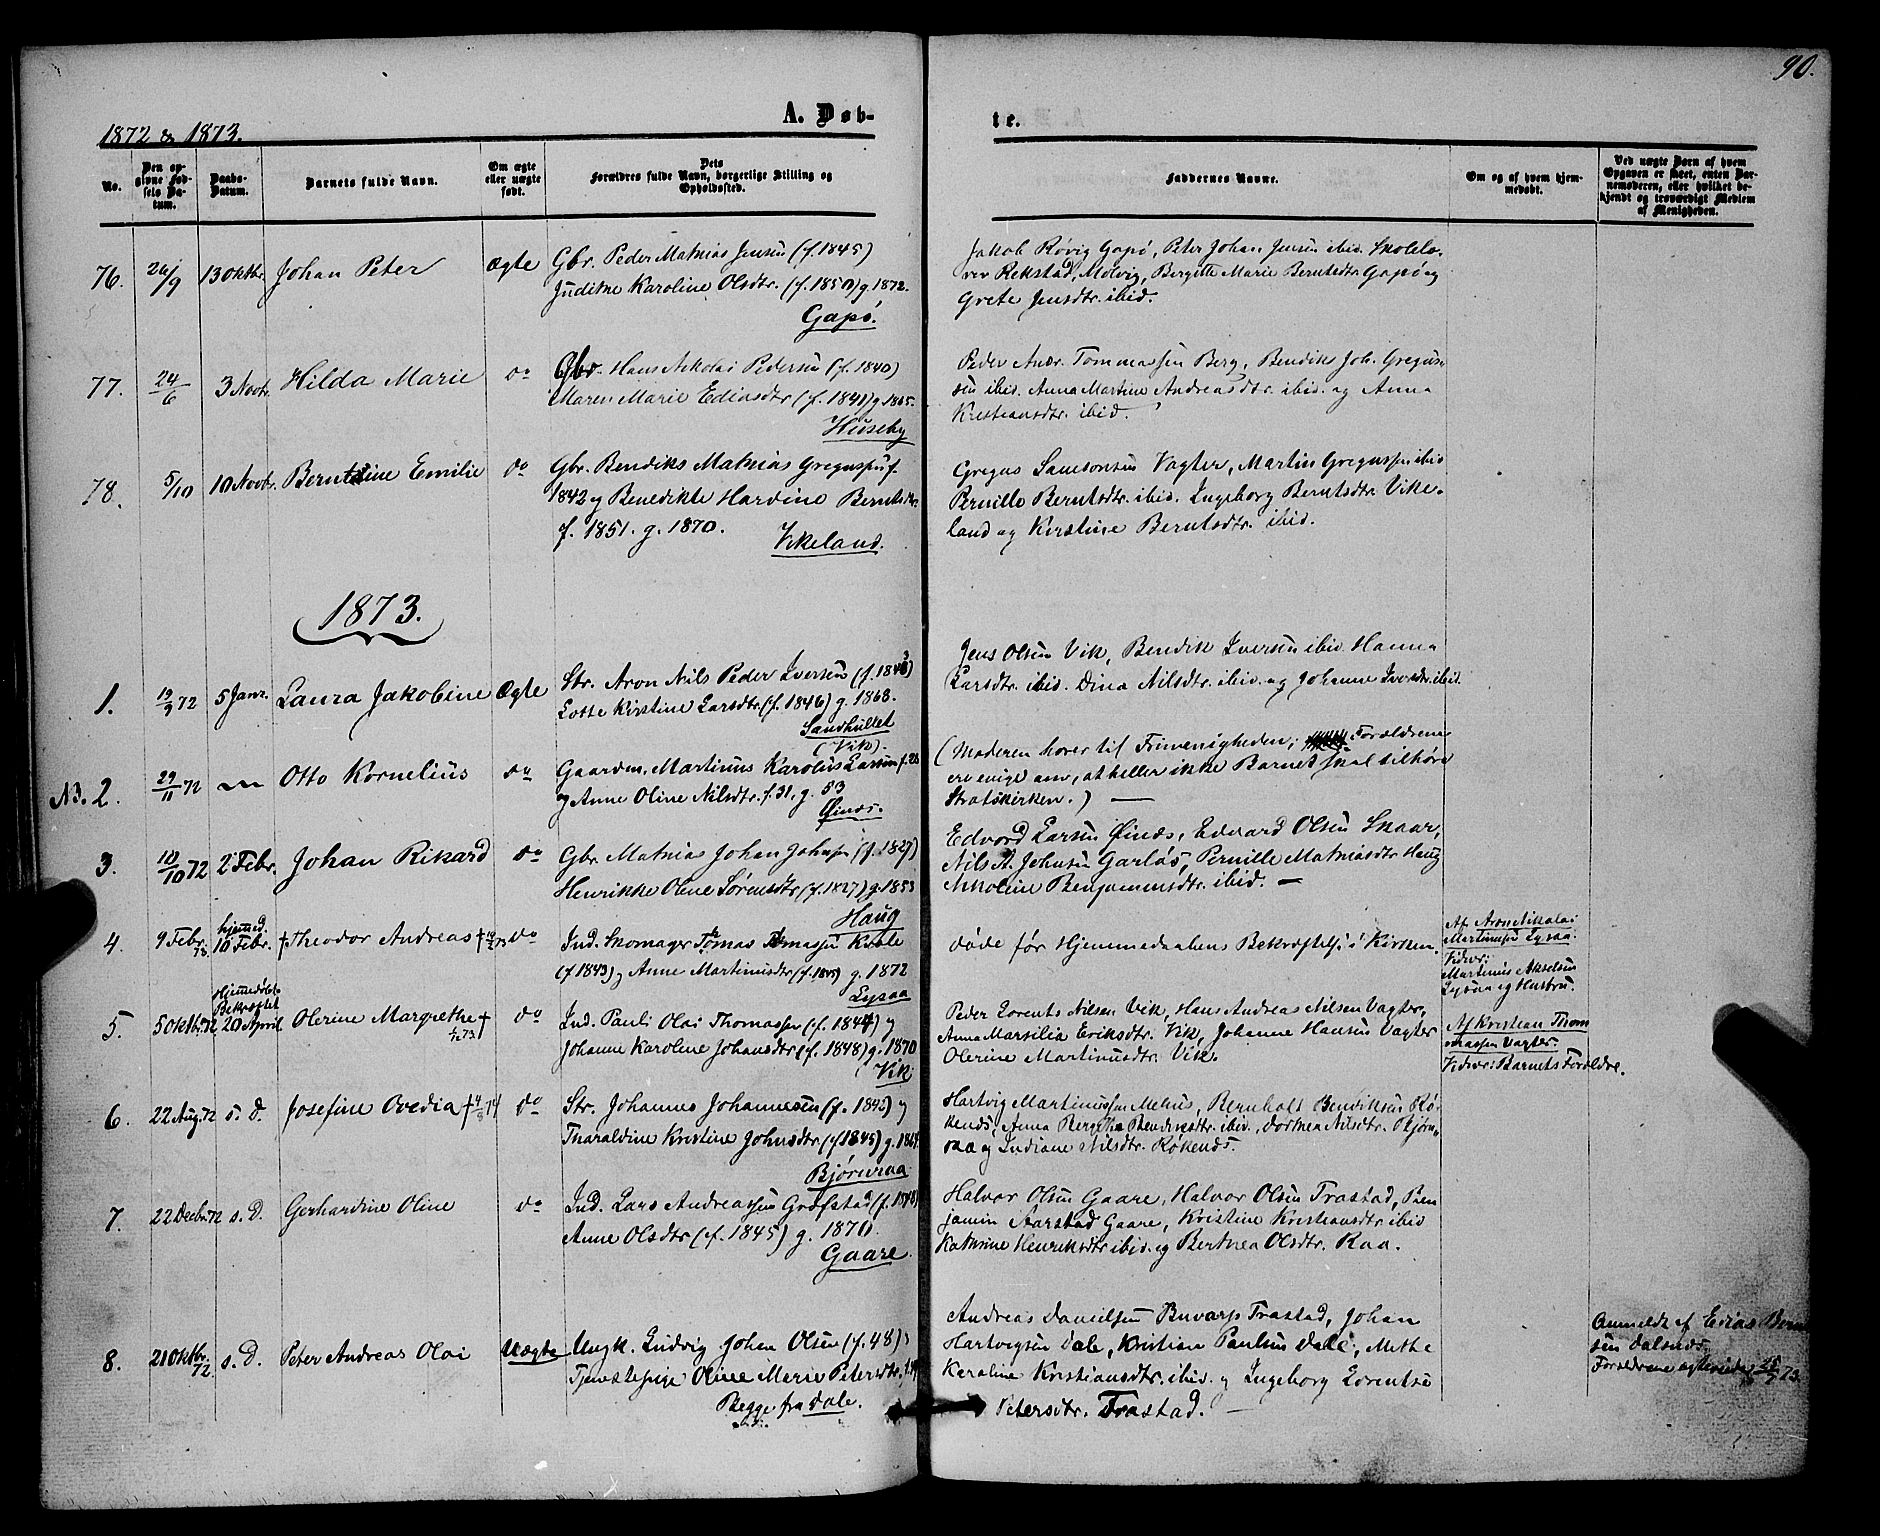 90.
1872 & 1873.
A. Døb-
te.
No.
Den op-
givne Fød-
sels Da-
tum.
Daabs-
Datum.
Barnets fulde Navn.
Om ægte
eller uægte
født.
Dets
Forældres fulde Navn, borgerlige Stilling og
Opholdssted.
Faddernes Navne.
Om og af hvem hjem-
medøbt.
Ved uægte Børn af hvem
Opgaven er skeet, enten Bar-
nemoderen, eller hvilket be-
kjendt og troværdigt Medlem
af Menigheden.
76. 26/9 13 Oktbr. Johan Peter ægte Gbr. Peder Mathias Jensen (f. 1845)
Judithe Karoline Olsdtr. (f. 1850) g 1872.
Gapø.
Jakob Røvig Gapø, Peter Johan Jensen ibid. Skolelæ-
rer Rekstad, Molvig, Bergitte Marie Berntsdtr. Gapø og
Grete Jensdtr. ibid.
77. 24/6 3 Novbr. Hilda Marie do Gbr. Hans Nikolai Pedersen (f. 1840)
Maren Marie Ediasdtr (f. 1841) g 1865.
Huseby
Peder Andr. Tommassen Berg, Bendiks Joh. Gregus-
sen ibid. Anna Martine Andreasdtr ibid. og Anna
Kristiansdtr. ibid.
78. 5/10 10 Novbr. Berntine Emilie do Gbr. Bendiks Mathias Gregussen f.
1842 og Benedikte Hardine Berntsdtr.
f. 1851. g. 1870.
Vikeland.
Gregus Samsonsen Vagter, Martin Gregussen ibid
Pernille Berntsdtr. ibid. Ingeborg Berntsdtr. Vike-
land og Kirstine Berntsdtr. ibid.
1873.
1. 19/9 72 5 Janr. Laura Jakobine Ægte Str. Aron Nils Peder Iversen (f. 1843)
Lotte Kirstine Larsdtr. (f. 1846) g. 1868.
Sandhullet
(Vik).
Jens Olsen Vik, Bendik Iversen ibid. Hanna
Larsdtr. ibid. Dina Nilsdtr. ibid. og Johanne Iversdtr. ibid.
N3. 2. 29/11 72 Otto Kornelius do Gaardm. Martinus Karolius Larsen f. 28
og Anne Oline Nilsdtr. f. 31, g. 53
Øines.
(Moderen hører til Frimenigheden; Forældrene
ere enige om, at heller ikke Barnet skal tilhøre
Statskirken.)
3. 10/10 72 2 Febr. Johan Rikard do Gbr Mathias Johan Johnsen (f. 1827)
Henrikke Oline Sørensdtr (f. 1827) g. 1853
Haug
Edvard Larsen Øines, Edvard Olsen Skaar,
Nils A. Johnsen Garløs, Pernille Mathiasdtr Haug
Nikoline Benjaminsdtr. ibid.
4. 9 Febr. 73. hjemmed. 10 Febr. † Theodor Andreas † do Ind. Skomager Tomas Tomassen Krole
(f 1843) og Anne Martinusdtr (f. ) g. 1872
Lysaa
døde før Hjemmedaabens Bekræftelse i Kirken.
Af Aron Nikolai
Martinussen Lysaa.
Vidner:
Martinus Akselsen
Lysaa og Hustru.
5. 5 Oktbr. 72 Hjemmedøbt Bekræftet 20 April Olerine Margrethe † do Ind. Pauli Olai Thomassen (f. 1844) og
Johanne Karoline Johansdtr (f. 1848) g. 1870
Vik
Peder Lorents Nilsen Vik, Hans Andreas Nilsen Vagter,
Anna Marsilia Eriksdtr. Vik, Johanne Hansen Vagter
Olerine Martinusdtr. Vik.
Af Kristian Thom
massen Vagter.
Vidner: Barnets Forældre.
6. 22 Aug. 72 s. D. Josefine Ovedia † 4/8 74 do Str. Johannes Johannesen (f. 1845) og
Tharaldine Kristine Johnsdtr (f 1845) g. 1869
Bjørnraa
Hartvig Martinussen Mehus, Bernholt Bendiksen Rø-
kenes, Anna Bergitha Bendiksdtr. ibid., Dorthea Nilsdtr. Bjørn-
raa og Indiane Nilsdtr. Røkenes.
7. 22 Decbr. 72 s. D. Gerhardine Oline do Ind. Lars Andreassen Grøfstad (f. 1848)
Anne Olsdtr (f. 1845) g. 1870.
Gaare
Halvor Olsen Gaare, Halvor Olsen Trastad, Ben
jamin Aarstad Gaare, Kristine Kristiansdtr. ibid
Kathrine Henriksdtr ibid. og Berthea Olsdtr. Raa.
8. 21 Oktbr. 72 s. D. Peter Andreas Olai Uægte Ungk. Ludvig Johan Olsen (f. 48) og
Tjenestepige Oline Marie Petersdtr. f. 49
Begge fra Dale.
Andreas Danielsen Buvarp Trastad, Johan
Hartvigsen Dale, Kristian Paulsen Dale, Methe
Karoline Kristiansdtr. ibid. og Ingeborg Lorentse
Petersdtr. Trastad.
Anmeldt af Erias Bernt
sen Dalsnes.
Forældrene ægteviede 73.